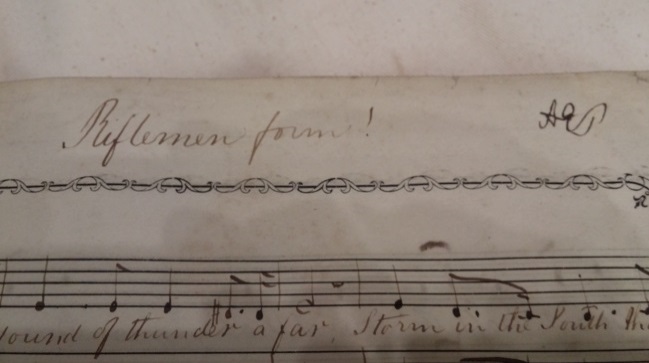 Riflemen form!
sound of thunder a far, Storm in the South th